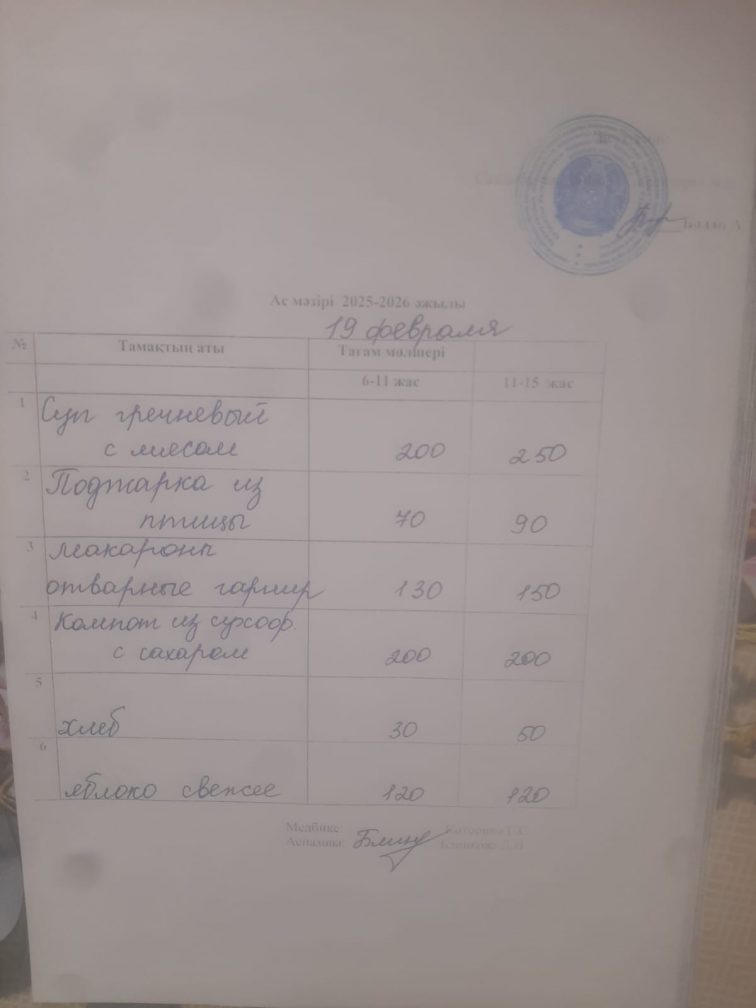 Ас мәзірі 2025-2026 әжылы
19 февраля
№ Тамақтың аты Тағам мөлшері
6-11 жас 11-15 жас
1 Суп гречневый
с мясом 200 250
2 Поджарка из
птицы 70 90
3 макароны
отварные гарнир 130 150
4 Компот из сухофр.
с сахаром 200 200
5
хлеб 30 50
6
яблоко свежее 120 120
Медбике
Аспазшы